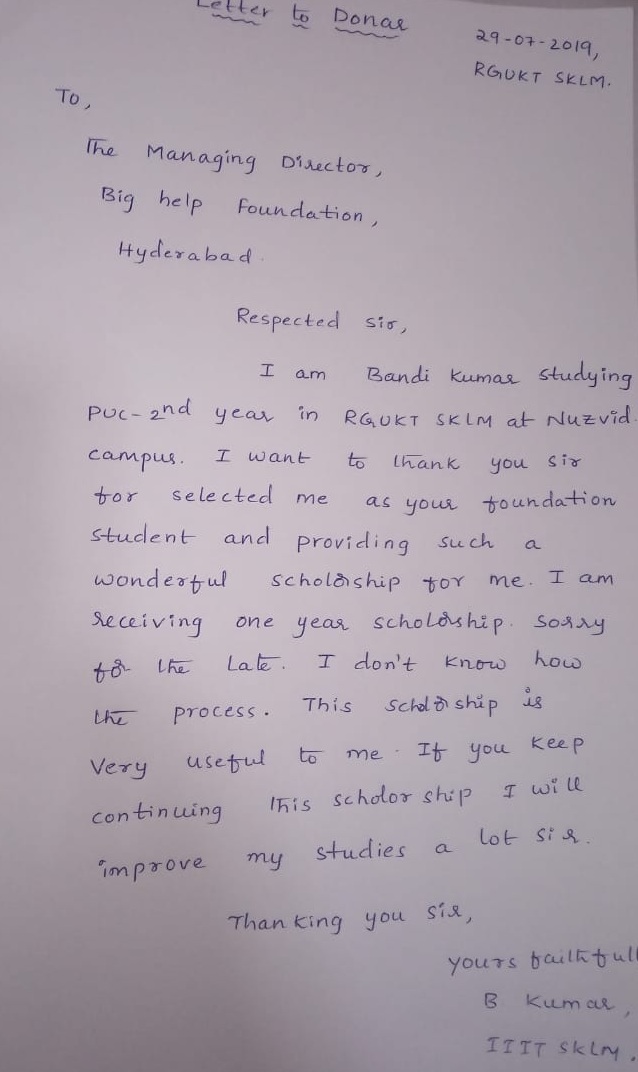 Letter to Donar
29-07-2019,
RGUKT SKLM.
To,
The Managing Director,
Big help Foundation,
Hyderabad.
Respected sir,
I am Bandi Kumar studying
PUC-2nd year in RGUKT SKLM at Nuzvid
campus. I want to thank you sir
for selected me as your foundation
student and providing such a
wonderful scholorship for me. I am
receiving one year scholorship. Sorry
for the Late. I don't know how
the process. This scholorship is
very useful to me. If you keep
continuing this scholorship I will
improve my studies a lot sir.
Thanking you sir,
yours faithfull
B Kumar,
IIIT SKLM.